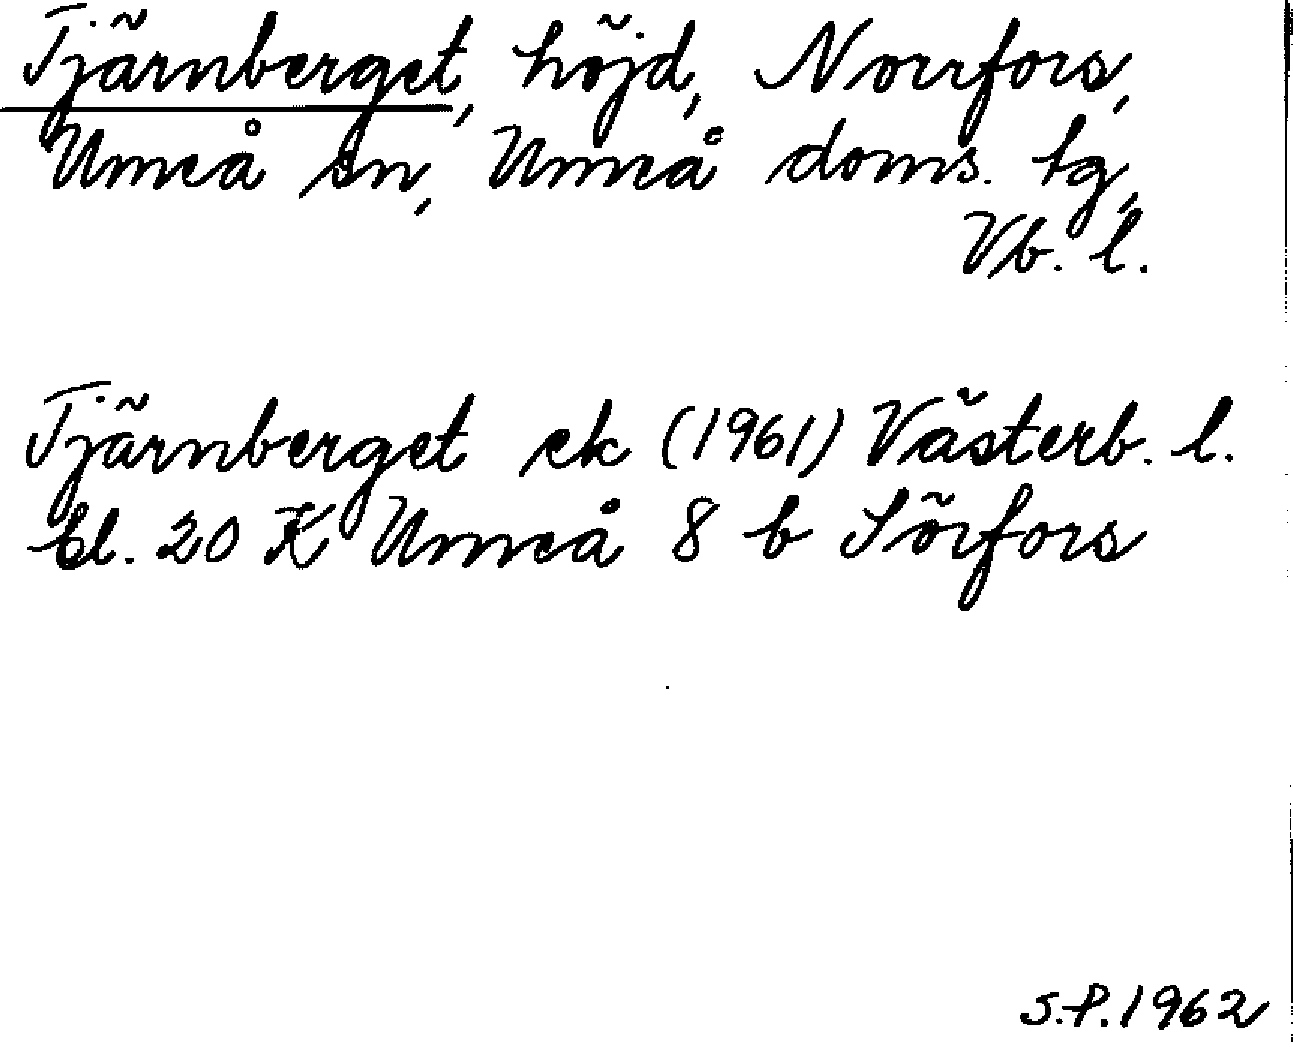 Tjärnberget, höjd, Norrfors,
Umeå sn, Umeå doms. tg,
Vb. l.
Tjärnberget ek (1961) Västerb. l.
bl. 20 K Umeå 8 b Sörfors
S.P. 1962